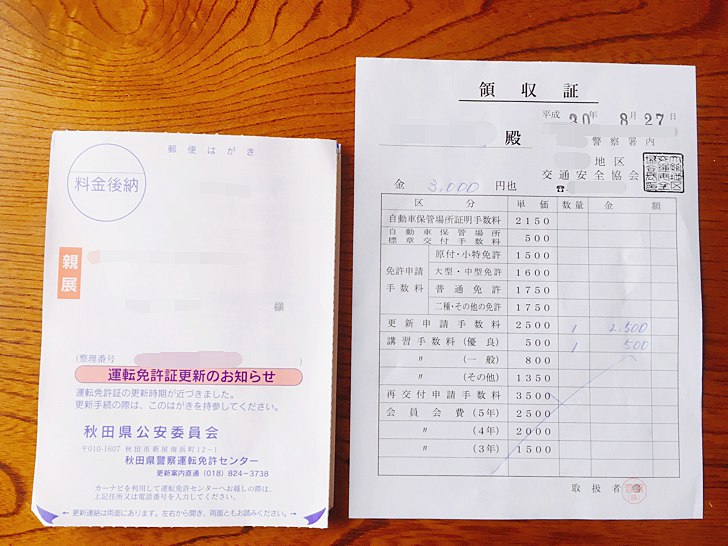 郵便はがき
料金後納
親展
様
(整理番号 )
運転免許証更新のお知らせ
運転免許証の更新時期が近づきました。
更新手続の際は、このはがきを持参してください。
秋田県公安委員会
〒010-1607 秋田市新屋南浜町12-1
秋田県警察運転免許センター
更新案内直通 (018) 824-3738
カーナビを利用して運転免許センターへお越しの際は、
上記住所又は電話番号を入力してください。
← 更新連絡は両面にあります。左右から開き、両面ともお読みください。→
領収証
平成 30年 8月27日
殿
警察署内
地区
交通安全協会
☎
金 3,000 円也
区分 単価 数量 金額
自動車保管場所証明手数料 2150
自動車保管場所標章交付手数料 500
免許申請手数料
原付・小特免許 1500
大型・中型免許 1600
普通免許 1750
二種・その他の免許 1750
更新申請手数料 2500 1 2,500
講習手数料(優良) 500 1 500
〃 (一般) 800
〃 (その他) 1350
再交付申請手数料 3500
会員会費(5年) 2500
〃 (4年) 2000
〃 (3年) 1500
取扱者